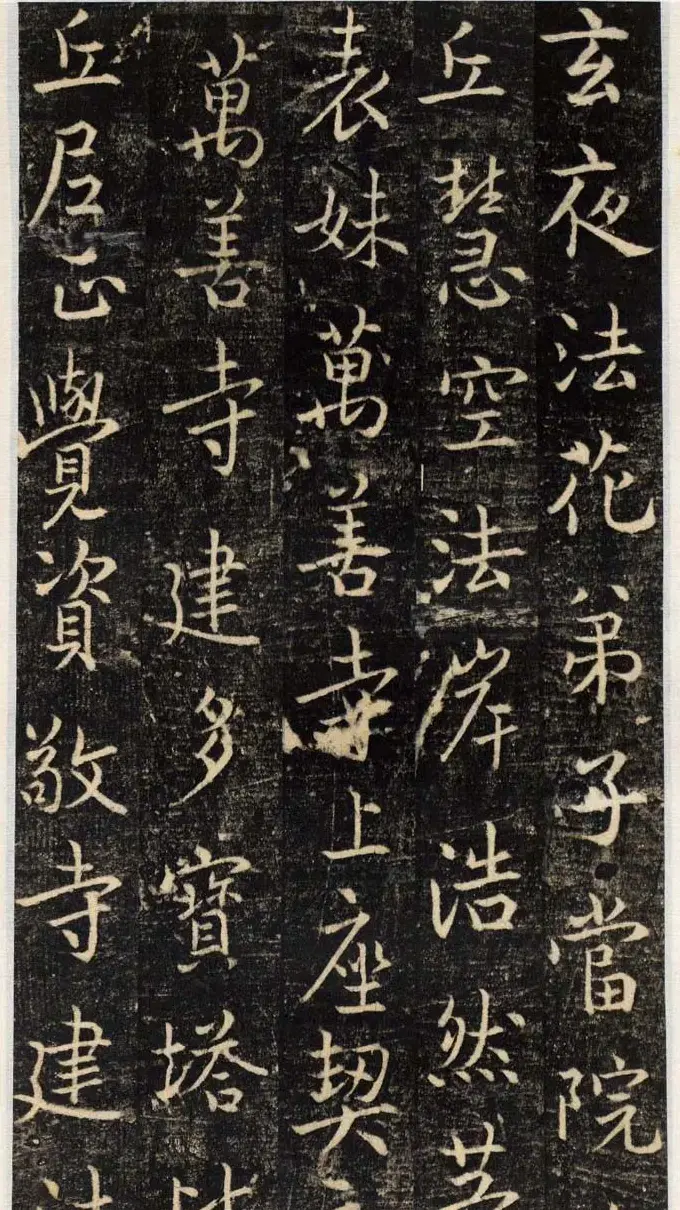 玄夜法花弟子當院
丘慧空法岸浩然
表妹萬善寺上座契
萬善寺建多寶塔比
丘尼正覺資敬寺建法